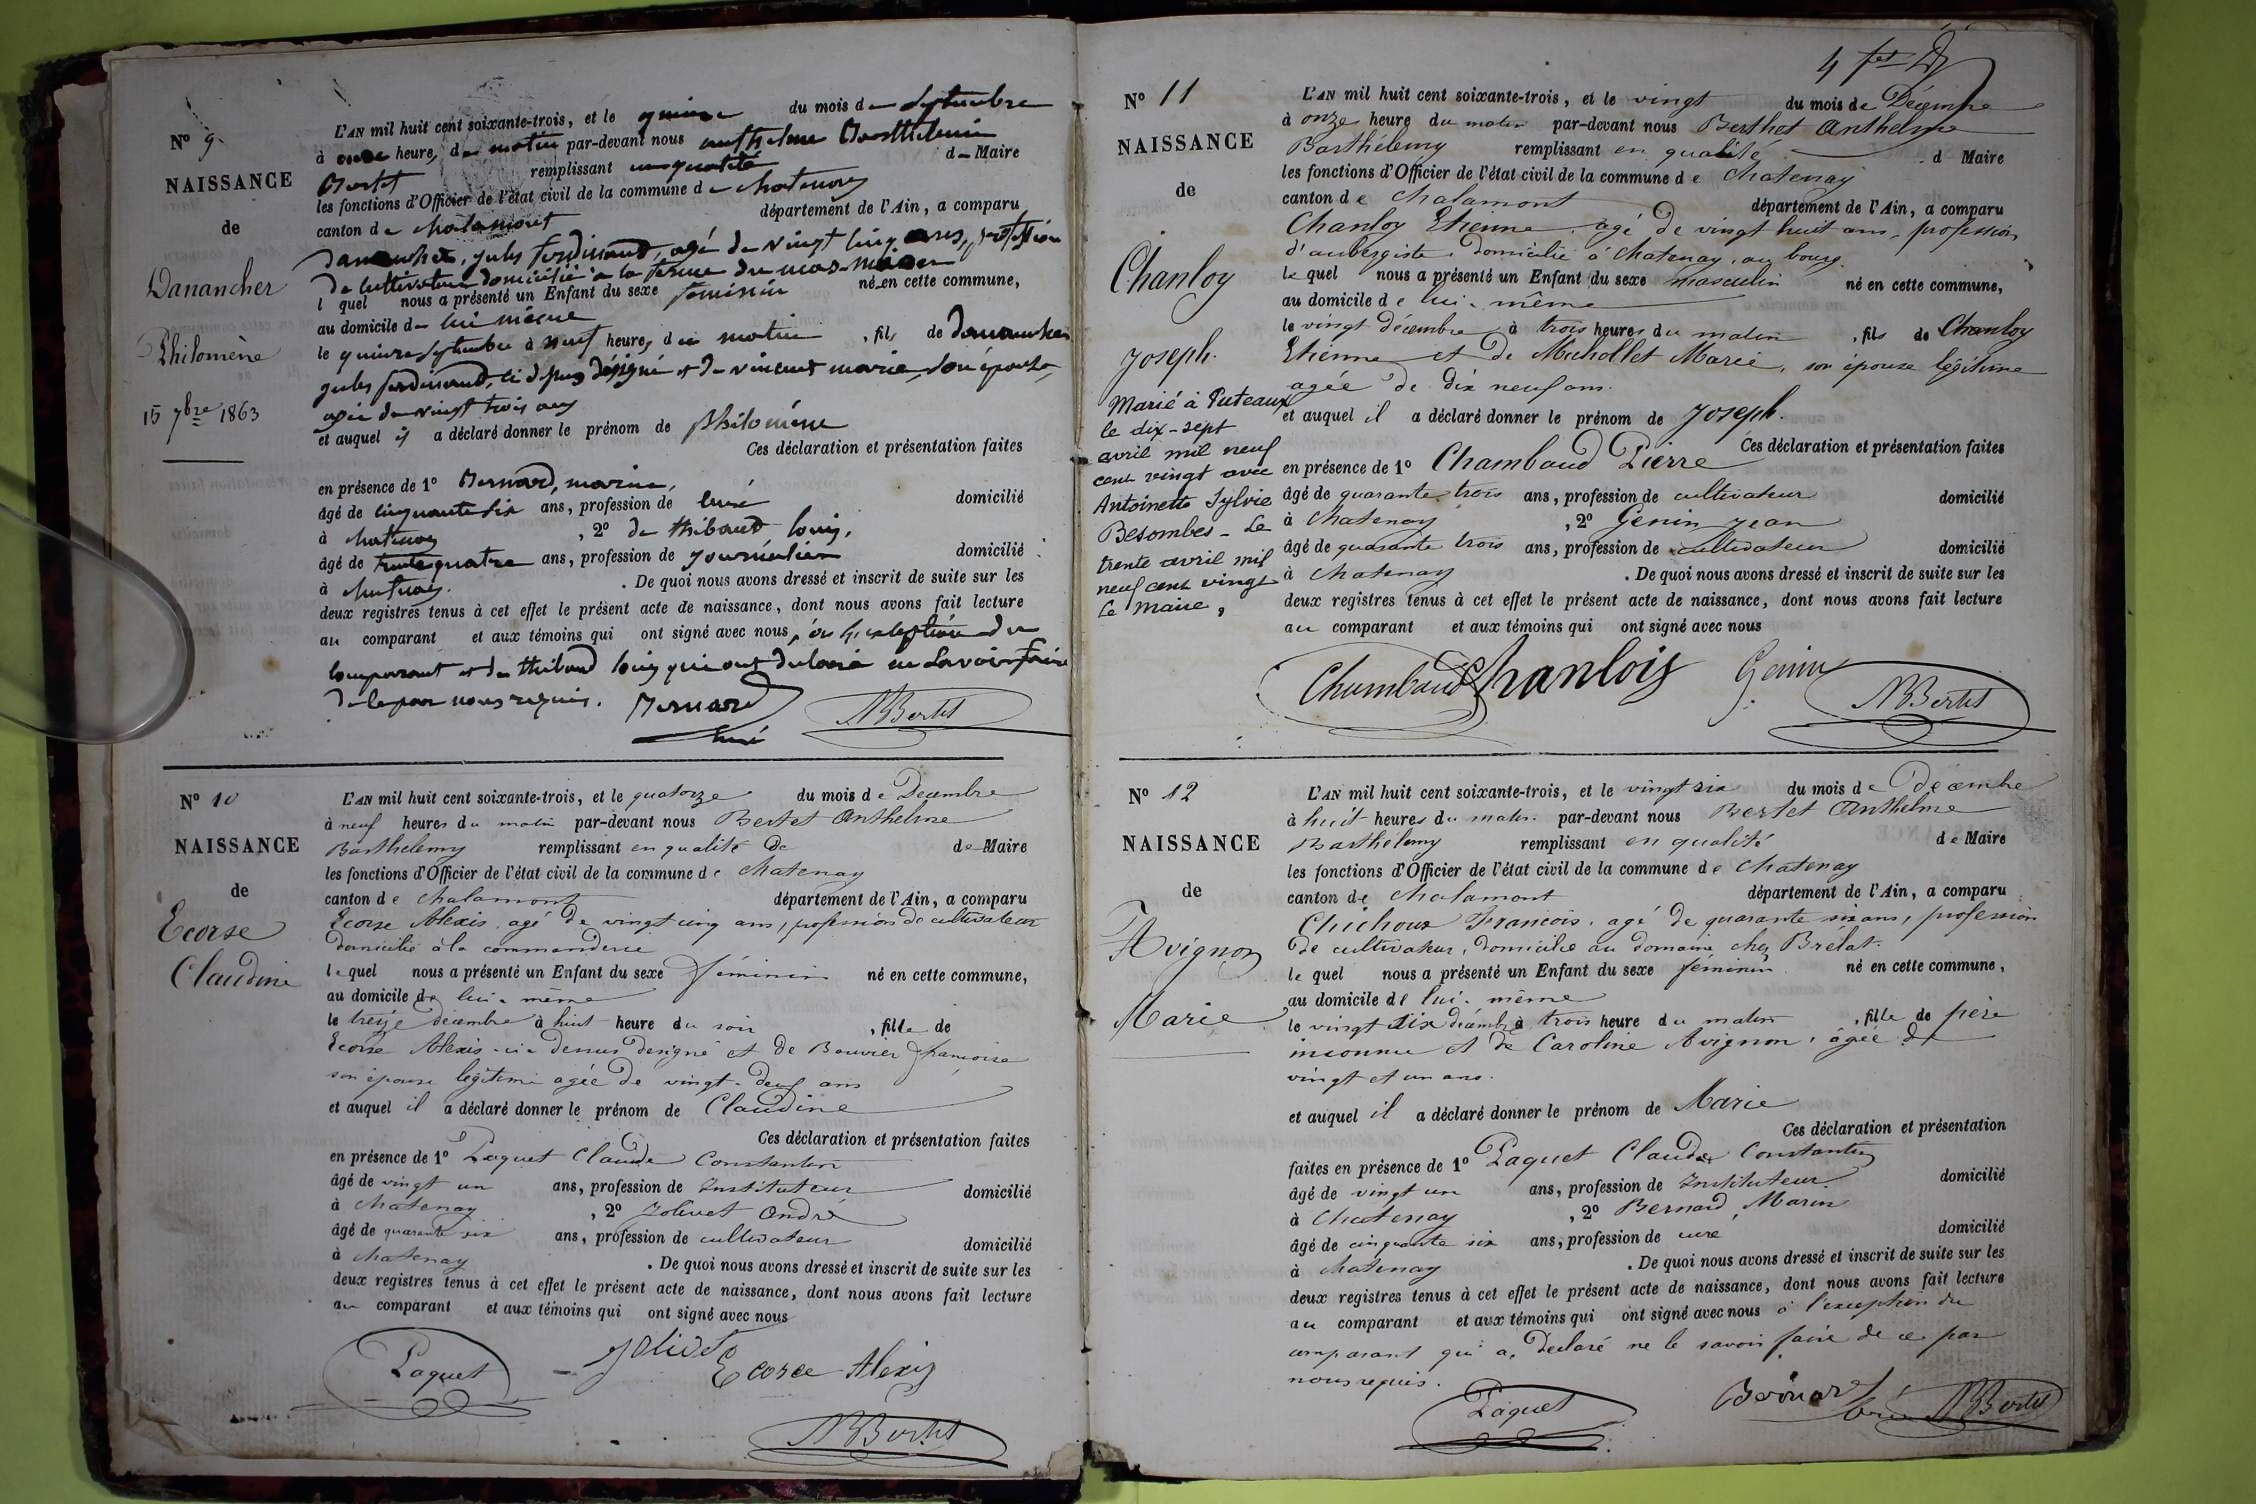 N° 9
NAISSANCE
de
Danancher
Philomène
15 7bre 1863
L'AN mil huit cent soixante-trois, et le quinze du mois de Septembre
à onze heures du matin par-devant nous anthelme Barthélemi
Bertet remplissant en qualité de Maire
les fonctions d'Officier de l'état civil de la commune de chatenay
canton de chalamont département de l'Ain, a comparu
Danancher, jules ferdinand, agé de vingt cinq ans, profession
de cultivateur domicilié à la ferme du mas
l quel nous a présenté un Enfant du sexe feminin né en cette commune,
au domicile de lui même
le quinze septembre à neuf heures du matin, fils de danancher
jules ferdinand, ci dessus désigné et de vincent marie, son épouse,
agée de vingt trois ans
et auquel il a déclaré donner le prénom de philomène
Ces déclaration et présentation faites
en présence de 1° Bernard, marin,
âgé de cinquante six ans, profession de curé domicilié
à chatenay, 2° de thibaud louis,
âgé de trente quatre ans, profession de journalier domicilié
à chatenay. De quoi nous avons dressé et inscrit de suite sur les
deux registres tenus à cet effet le présent acte de naissance, dont nous avons fait lecture
au comparant et aux témoins qui ont signé avec nous, à l'exception du
comparant et de thibaud louis qui ont déclaré ne savoir faire
de ce par nous requis. Bernard
curé ABBertet
N° 10
NAISSANCE
de
Ecorse
Claudine
L'AN mil huit cent soixante-trois, et le quatorze du mois de Décembre
à neuf heures du matin par-devant nous Bertet Anthelme
Barthélemy remplissant en qualité de de Maire
les fonctions d'Officier de l'état civil de la commune de chatenay
canton de chalamont département de l'Ain, a comparu
Ecorse Alexis, agé de vingt cinq ans, profession de cultivateur
domicilié à la commanderie
le quel nous a présenté un Enfant du sexe féminin né en cette commune,
au domicile de lui-même
le treize décembre à huit heure du soir, fille de
Ecorse Alexis ci-dessus désigné et de Bouvier françoise
son épouse légitime agée de vingt-deux ans
et auquel il a déclaré donner le prénom de Claudine
Ces déclaration et présentation faites
en présence de 1° Paquet Claude Constantin
âgé de vingt un ans, profession de Instituteur domicilié
à Chatenay, 2° Jolivet André
âgé de quarante six ans, profession de cultivateur domicilié
à chatenay. De quoi nous avons dressé et inscrit de suite sur les
deux registres tenus à cet effet le présent acte de naissance, dont nous avons fait lecture
au comparant et aux témoins qui ont signé avec nous
Paquet Jolivet Ecorce Alexis
ABBertet
4
N° 11
NAISSANCE
de
Chanloy
Joseph.
Marié à Puteaux
le dix-sept
avril mil neuf
cent vingt avec
Antoinette Sylvie
Besombes - Le
trente avril mil
neuf cent vingt
Le Maire,
L'AN mil huit cent soixante-trois, et le vingt du mois de Décembre
à onze heure du matin par-devant nous Berthet Anthelme
Barthélemy remplissant en qualité d Maire
les fonctions d'Officier de l'état civil de la commune de Chatenay
canton de Chalamont département de l'Ain, a comparu
Chanloy Etienne, agé de vingt huit ans, profession
d'aubergiste domicilié à Chatenay, au bourg.
le quel nous a présenté un Enfant du sexe masculin né en cette commune,
au domicile de lui-même
le vingt décembre à trois heures du matin, fils de Chanloy
Etienne et de Michollet Marie, son épouse légitime
agée de dix neuf ans.
et auquel il a déclaré donner le prénom de Joseph.
Ces déclaration et présentation faites
en présence de 1° Chambaud Pierre
âgé de quarante trois ans, profession de cultivateur domicilié
à Chatenay, 2° Genin Jean
âgé de quarante trois ans, profession de cultivateur domicilié
à Chatenay. De quoi nous avons dressé et inscrit de suite sur les
deux registres tenus à cet effet le présent acte de naissance, dont nous avons fait lecture
au comparant et aux témoins qui ont signé avec nous
Chambaud Chanlois Genin
ABBertet
N° 12
NAISSANCE
de
Avignon
Marie
L'AN mil huit cent soixante-trois, et le vingt six du mois de Décembre
à huit heures du matin par-devant nous Bertet Anthelme
Barthélemy remplissant en qualité de Maire
les fonctions d'Officier de l'état civil de la commune de Chatenay
canton de Chalamont département de l'Ain, a comparu
Chichoux François, agé de quarante six ans, profession
de cultivateur, domicilié au domaine chez Brélat.
le quel nous a présenté un Enfant du sexe féminin né en cette commune,
au domicile de lui-même
le vingt six décembre à trois heure du matin, fille de père
inconnu et de Caroline Avignon, agée de
vingt et un ans.
et auquel il a déclaré donner le prénom de Marie
Ces déclaration et présentation
faites en présence de 1° Paquet Claude Constantin
âgé de vingt un ans, profession de Instituteur domicilié
à Chatenay, 2° Bernard Marin
âgé de cinquante six ans, profession de curé domicilié
à chatenay. De quoi nous avons dressé et inscrit de suite sur les
deux registres tenus à cet effet le présent acte de naissance, dont nous avons fait lecture
au comparant et aux témoins qui ont signé avec nous à l'exception du
comparant qui a déclaré ne le savoir faire de ce par
nous requis.
Paquet Bernard curé ABBertet